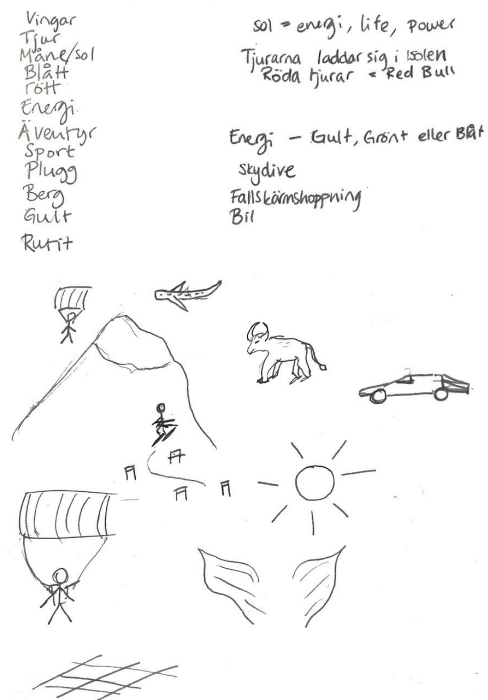 Vingar
Tjur
Måne/sol
Blått
rött
Energi
Äventyr
Sport
Plugg
Berg
Gult
Rutit
sol = energi, life, power
Tjurarna laddar sig i solen
Röda tjurar = Red Bull
Energi - Gult, Grönt eller Blåt
Skydive
Fallskärmshoppning
Bil